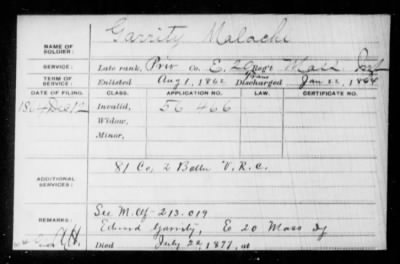 Garrity Malachi
NAME OF SOLDIER:
SERVICE: Late rank, Priv Co. E, 20 Reg't Mass Inf
TERM OF SERVICE: Enlisted Aug 1, 1862 Trans Discharged Jan 22, 1864
DATE OF FILING. CLASS. APPLICATION NO. LAW. CERTIFICATE NO.
1864 Dec 12 Invalid, 56 466
Widow,
Minor,
ADDITIONAL SERVICES: 81 Co, 2 Battn V.R.C.
REMARKS: See M. Of- 213.019
Edwd Garrity, E 20 Mass If
Died July 22, 1877, at